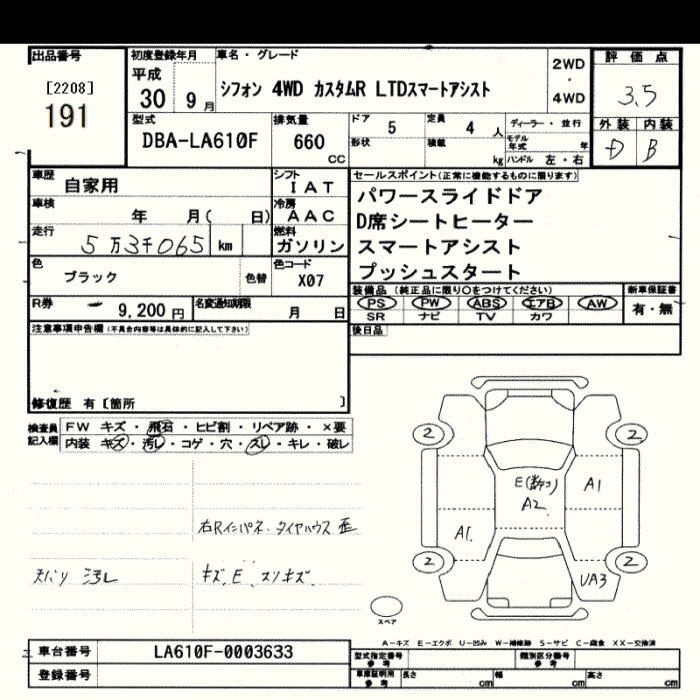 出品番号
[2208]
191
初度登録年月
平成
30 9月
車名・グレード
シフォン 4WD カスタムR LTDスマートアシスト
2WD
・
4WD
評価点
3.5
外装 内装
D B
型式
DBA-LA610F
排気量
660
CC
ドア 5
定員 4人
形状
積載 kg
ディーラー・並行
モデル年式 年
ハンドル 左・右
車歴
自家用
シフト
IAT
車検
年 月( 日)
冷房
AAC
走行
5万3千065 km
燃料
ガソリン
色
ブラック
色替
色コード
X07
セールスポイント(正常に機能するものに限ります)
パワースライドドア
D席シートヒーター
スマートアシスト
プッシュスタート
装備品(純正品に限り○をつけてください)
PS PW ABS エアB AW
SR ナビ TV カワ
新車保証書
有・無
R券
9,200円
名変通知期限
月 日
後日品
注意事項申告欄(不具合内容等は具体的に記入して下さい)
修復歴 有[箇所 ]
検査員記入欄
FW キズ・飛石・ヒビ割・リペア跡・×要
内装 キズ・汚レ・コゲ・穴・スレ・キレ・破レ
右Rインパネ.タイヤハウス 歪
天バリ 汚レ
キズ.E.スリキズ.
2
2
A1
A2
A1
2
2
UA3
スペア
A-キズ E-エクボ U-凹み W-補修跡 S-サビ C-腐食 XX-交換済
車台番号
LA610F-0003633
登録番号
型式指定番号
参考
類別区分番号
参考
車庫証明用
参考
長さ cm
幅 cm
高さ cm